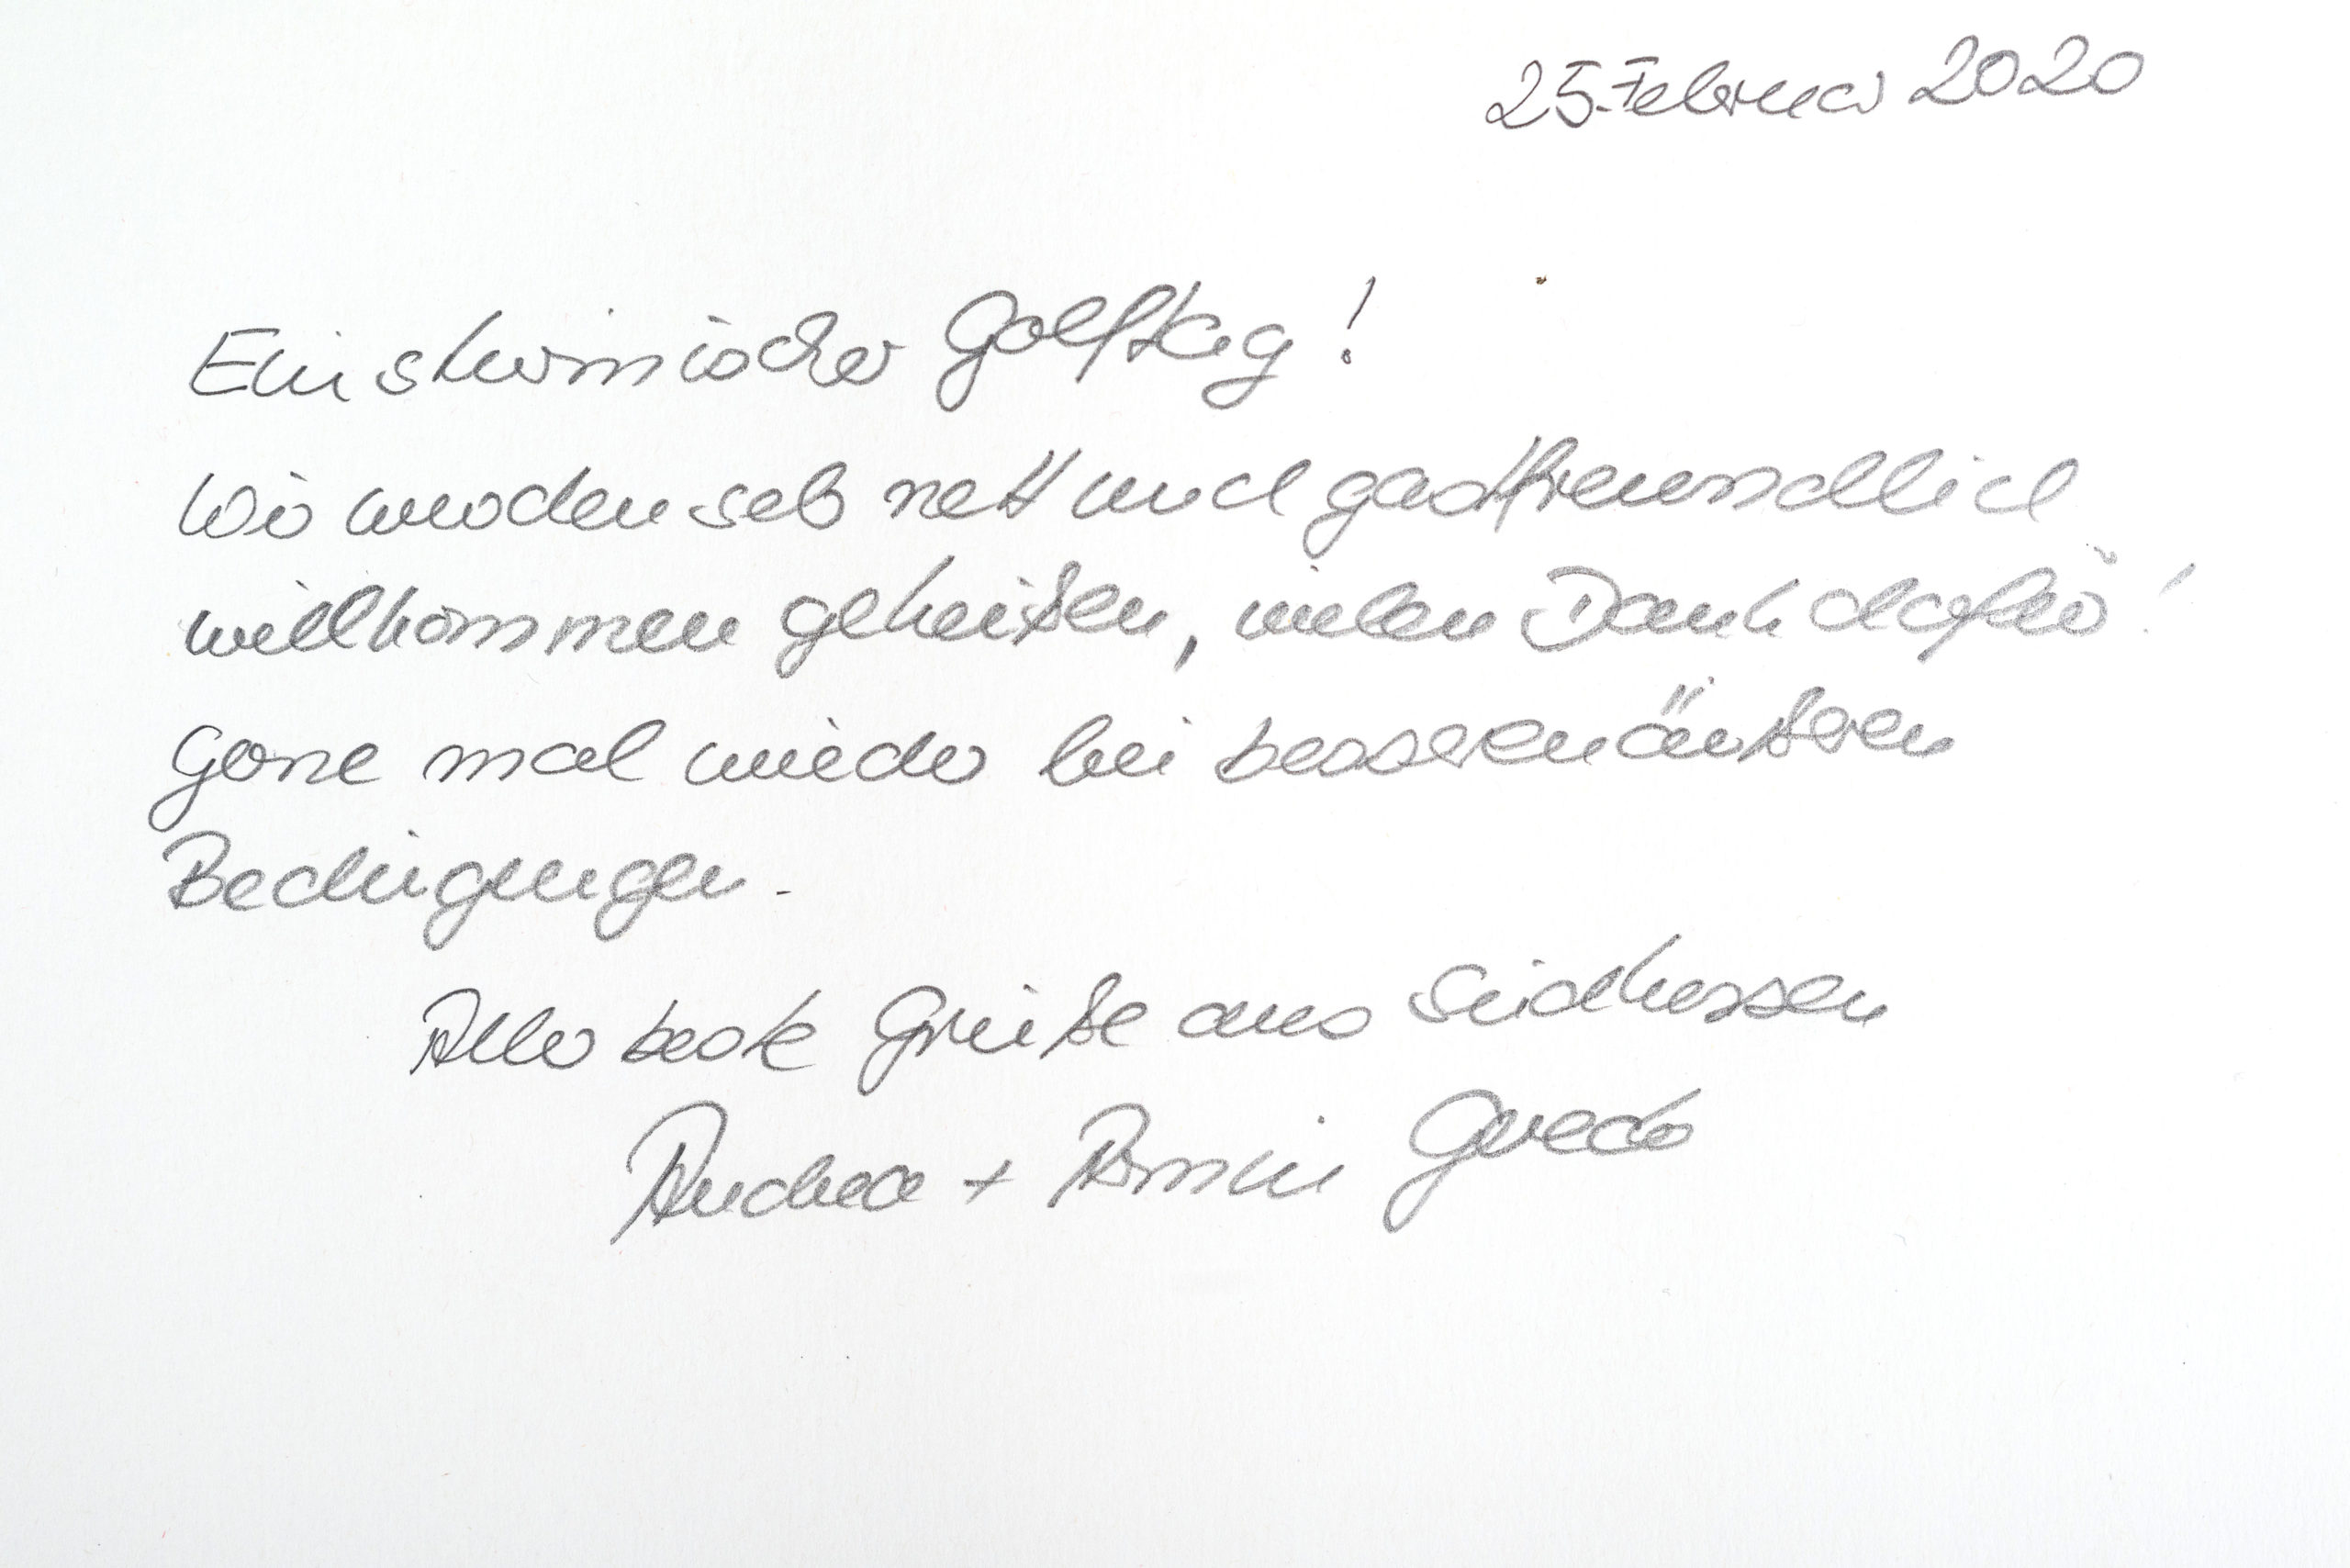 25. Februar 2020
Ein stürmischer Golftag!
Wir wurden sehr nett und gastfreundlich
willkommen geheißen, vielen Dank dafür!
Gerne mal wieder bei besseren äußeren
Bedingungen.
Aller beste Grüße aus Südhessen
Andrea + Armin